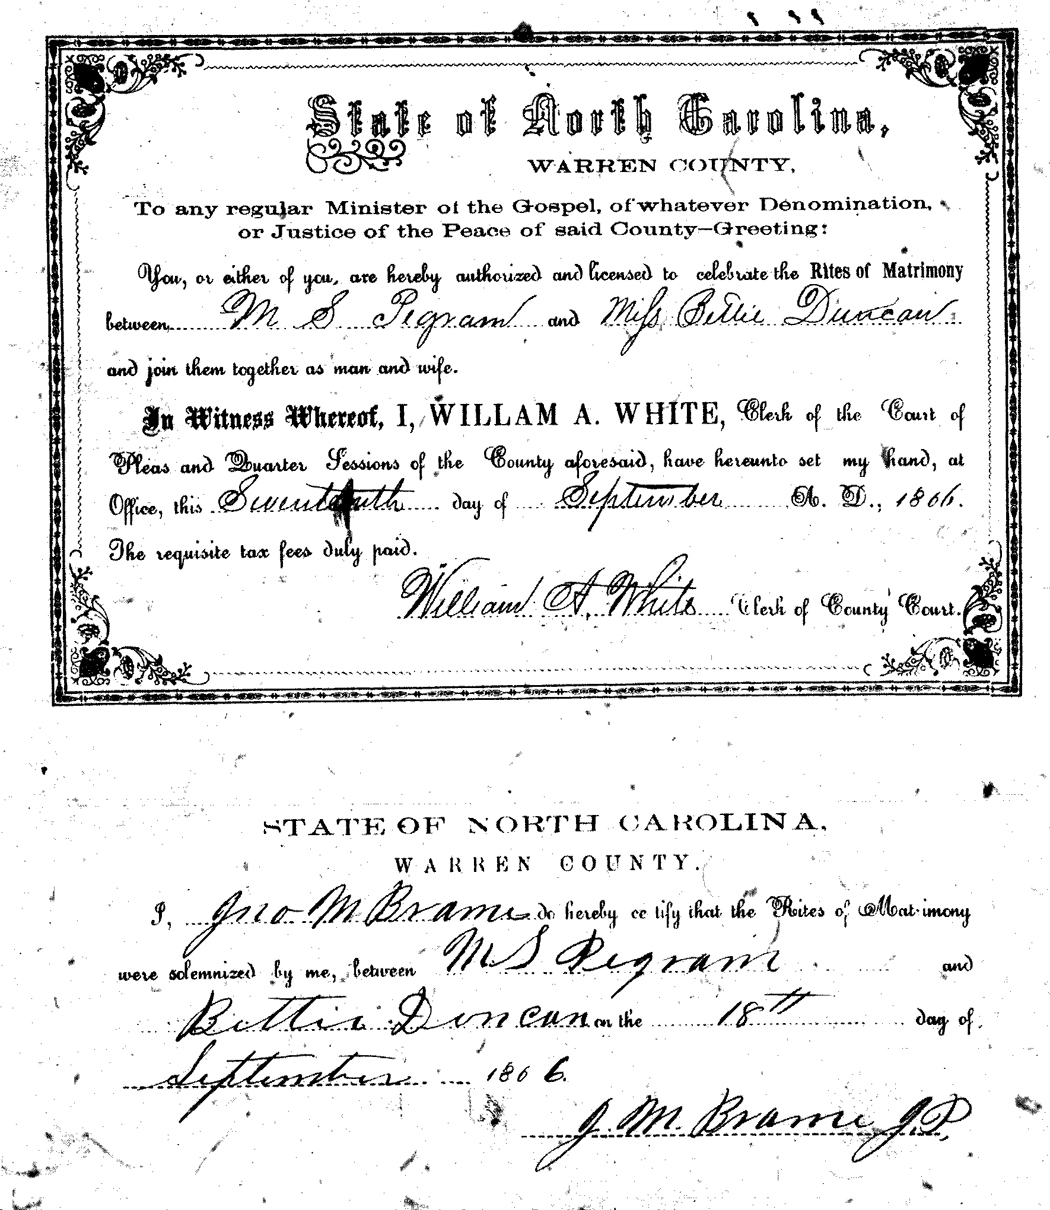 State of North Carolina,
WARREN COUNTY,
To any regular Minister of the Gospel, of whatever Denomination,
or Justice of the Peace of said County—Greeting:
You, or either of you, are hereby authorized and licensed to celebrate the Rites of Matrimony
between M S Pegram and Miss Bettie Duncan
and join them together as man and wife.
In Witness Whereof, I, WILLAM A. WHITE, Clerk of the Court of
Pleas and Quarter Sessions of the County aforesaid, have hereunto set my hand, at
Office, this Seventeenth day of September A. D., 1866.
The requisite tax fees duly paid.
William A. White Clerk of County Court.
STATE OF NORTH CAROLINA,
WARREN COUNTY.
I, Jno M Brame do hereby ce tify that the Rites of Mat imony
were solemnized by me, between M S Pegram and
Bettie Duncan on the 18th day of
September 1866.
J. M. Brame J.P.